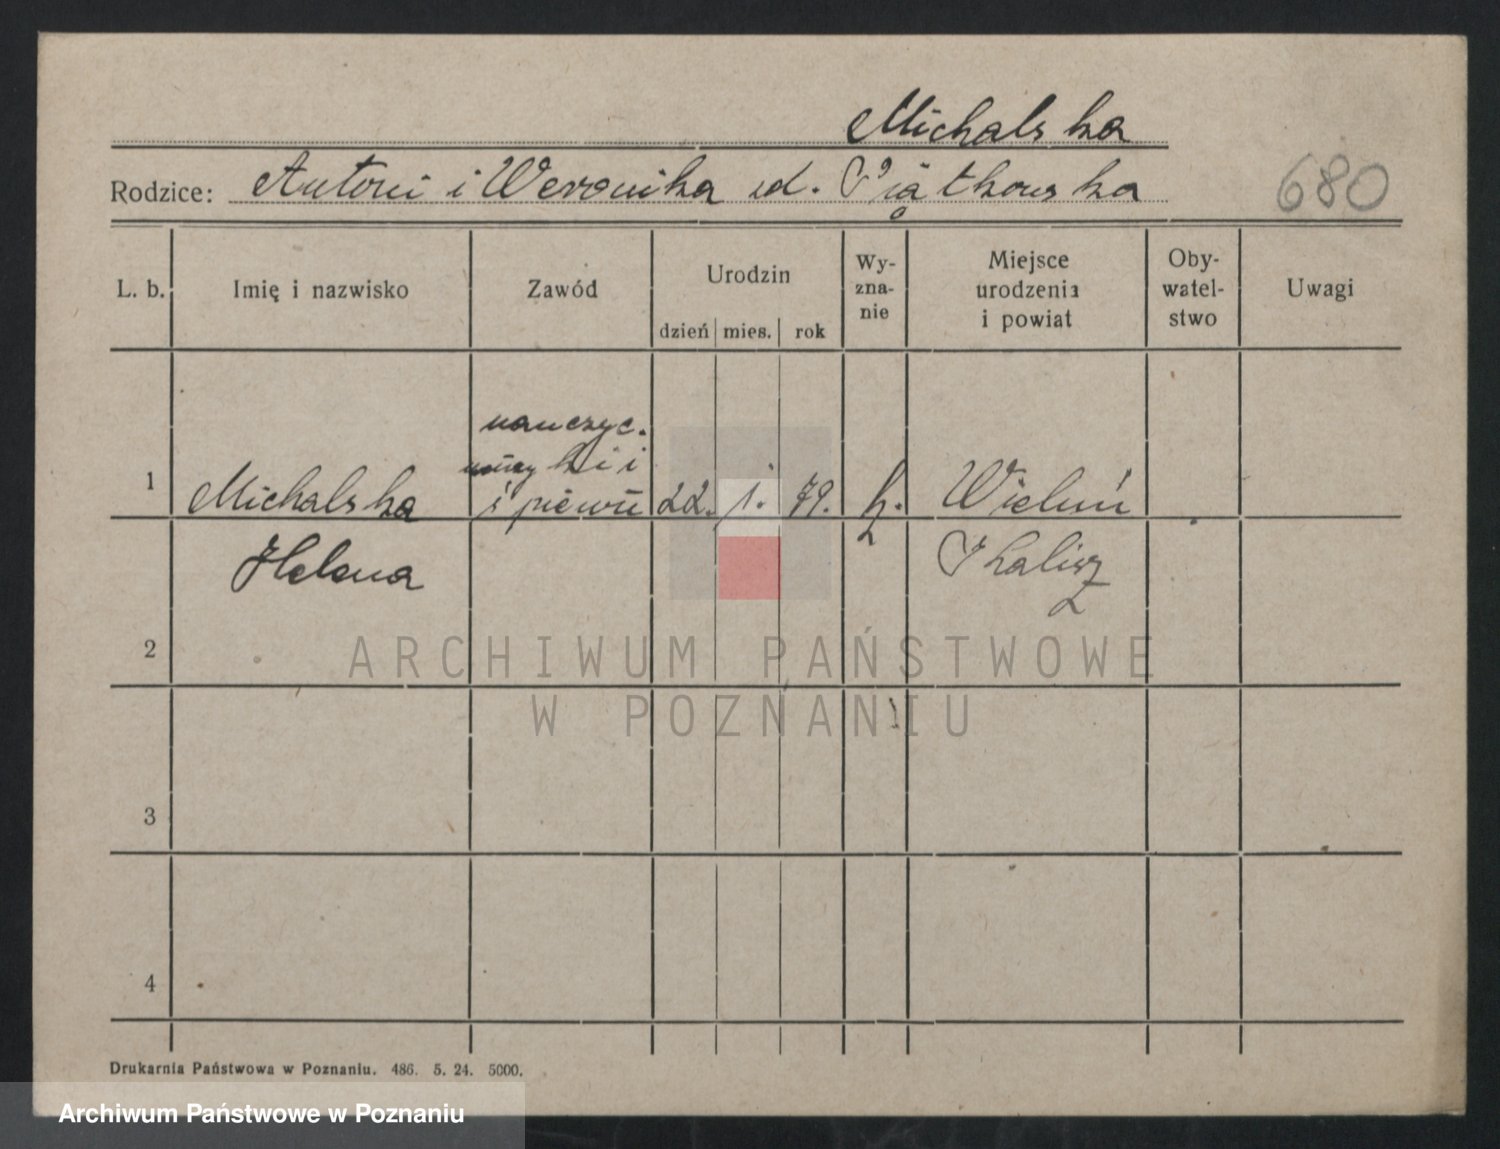 Michalska
Rodzice: Antoni i Weronika ud. Piątkowska
680
L. b. Imię i nazwisko Zawód Urodzin dzień mies. rok Wy-zna-nie Miejsce urodzenia i powiat Oby-watel-stwo Uwagi
nauczyc.
1 Michalska śpiewu 22. 1. 79. k. Wieluń
Helena Kalisz
2
3
4
ARCHIWUM PAŃSTWOWE
W POZNANIU
Drukarnia Państwowa w Poznaniu. 486. 5. 24. 5000.
Archiwum Państwowe w Poznaniu